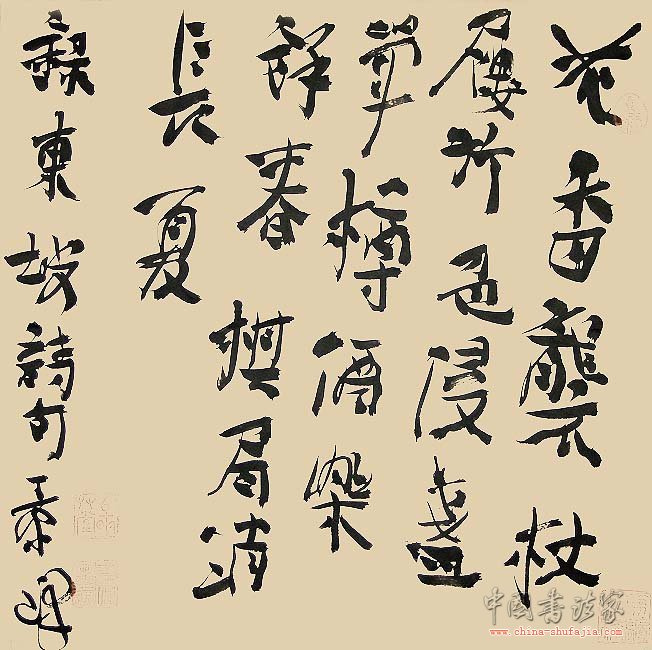 花香襲杖
屨竹色侵盞
斝樽酒樂
餘春棋局消
長夏
錄東坡詩句
中国书法家
www.china-shufajia.com